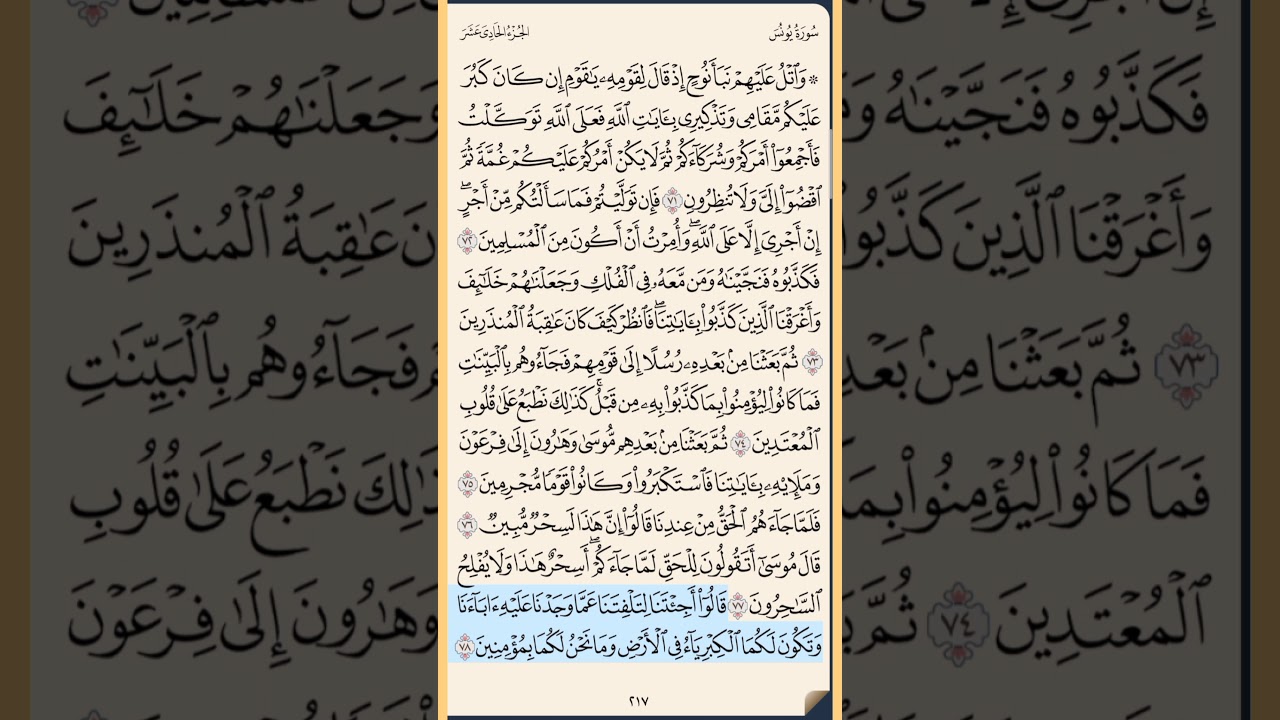 سُورَةُ يُونُسَ
الجُزْءُ الحَادِيَ عَشَرَ
۞ وَٱتْلُ عَلَيْهِمْ نَبَأَ نُوحٍ إِذْ قَالَ لِقَوْمِهِۦ يَٰقَوْمِ إِن كَانَ كَبُرَ
عَلَيْكُم مَّقَامِى وَتَذْكِيرِى بِـَٔايَٰتِ ٱللَّهِ فَعَلَى ٱللَّهِ تَوَكَّلْتُ
فَأَجْمِعُوٓا۟ أَمْرَكُمْ وَشُرَكَآءَكُمْ ثُمَّ لَا يَكُنْ أَمْرُكُمْ عَلَيْكُمْ غُمَّةً ثُمَّ
ٱقْضُوٓا۟ إِلَىَّ وَلَا تُنظِرُونِ ٧١ فَإِن تَوَلَّيْتُمْ فَمَا سَأَلْتُكُم مِّنْ أَجْرٍ ۖ
إِنْ أَجْرِىَ إِلَّا عَلَى ٱللَّهِ ۖ وَأُمِرْتُ أَنْ أَكُونَ مِنَ ٱلْمُسْلِمِينَ ٧٢
فَكَذَّبُوهُ فَنَجَّيْنَٰهُ وَمَن مَّعَهُۥ فِى ٱلْفُلْكِ وَجَعَلْنَٰهُمْ خَلَٰٓئِفَ
وَأَغْرَقْنَا ٱلَّذِينَ كَذَّبُوا۟ بِـَٔايَٰتِنَا ۖ فَٱنظُرْ كَيْفَ كَانَ عَٰقِبَةُ ٱلْمُنذَرِينَ
٧٣ ثُمَّ بَعَثْنَا مِنۢ بَعْدِهِۦ رُسُلًا إِلَىٰ قَوْمِهِمْ فَجَآءُوهُم بِٱلْبَيِّنَٰتِ
فَمَا كَانُوا۟ لِيُؤْمِنُوا۟ بِمَا كَذَّبُوا۟ بِهِۦ مِن قَبْلُ ۚ كَذَٰلِكَ نَطْبَعُ عَلَىٰ قُلُوبِ
ٱلْمُعْتَدِينَ ٧٤ ثُمَّ بَعَثْنَا مِنۢ بَعْدِهِم مُّوسَىٰ وَهَٰرُونَ إِلَىٰ فِرْعَوْنَ
وَمَلَإِي۟هِۦ بِـَٔايَٰتِنَا فَٱسْتَكْبَرُوا۟ وَكَانُوا۟ قَوْمًا مُّجْرِمِينَ ٧٥
فَلَمَّا جَآءَهُمُ ٱلْحَقُّ مِنْ عِندِنَا قَالُوٓا۟ إِنَّ هَٰذَا لَسِحْرٌ مُّبِينٌ ٧٦
قَالَ مُوسَىٰٓ أَتَقُولُونَ لِلْحَقِّ لَمَّا جَآءَكُمْ ۖ أَسِحْرٌ هَٰذَا وَلَا يُفْلِحُ
ٱلسَّٰحِرُونَ ٧٧ قَالُوٓا۟ أَجِئْتَنَا لِتَلْفِتَنَا عَمَّا وَجَدْنَا عَلَيْهِ ءَابَآءَنَا
وَتَكُونَ لَكُمَا ٱلْكِبْرِيَآءُ فِى ٱلْأَرْضِ وَمَا نَحْنُ لَكُمَا بِمُؤْمِنِينَ ٧٨
٢١٧